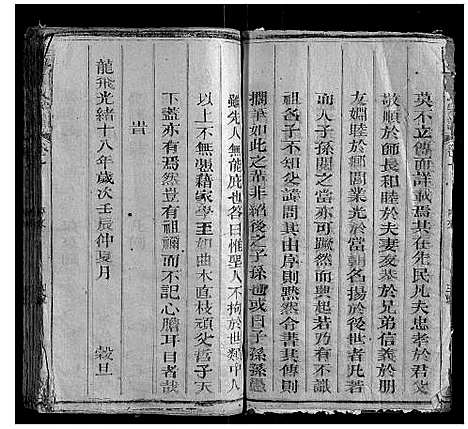 莫不立傳而詳載焉其在先民凡夫忠孝於君父
敬順於師長和睦於夫妻友恭於兄弟信義於朋
友婣睦於鄉閭業光於當朝名揚於後世者凡若
而人子孫閱之當亦可蹶然而興起若乃有不識
祖名子不知父諱問其由序則默然令書其傳則
擱筆如此之輩非紹後之子孫也或曰子孫孫愚
雖先人無能庇也答曰惟聖人不拘於世類中人
以上不無憑藉家學王如曲木直枝頑父哲子天
下蓋亦有焉然豈有祖禰而不記心膽耳目者哉
旹
龍飛光緒十八年歲次壬辰仲夏月 穀旦